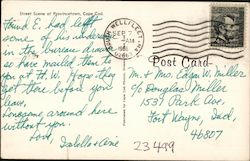 Street Scene at Provincetown, Cape Cod
Friend E. had left
some of his under
in the bureau drawer
so have mailed them to
you at Ft. W. Hope they
get there before you
leave.
Lonesome around here
without you.
Love,
SOUTH WELLFLEET, MA
SEP 7
AM
1968
02663
Post Card
Mr. & Mrs. Edgar W. Miller
c/o Douglas Miller
1531 Park Ave.
Fort Wayne, Ind.
46807
23499